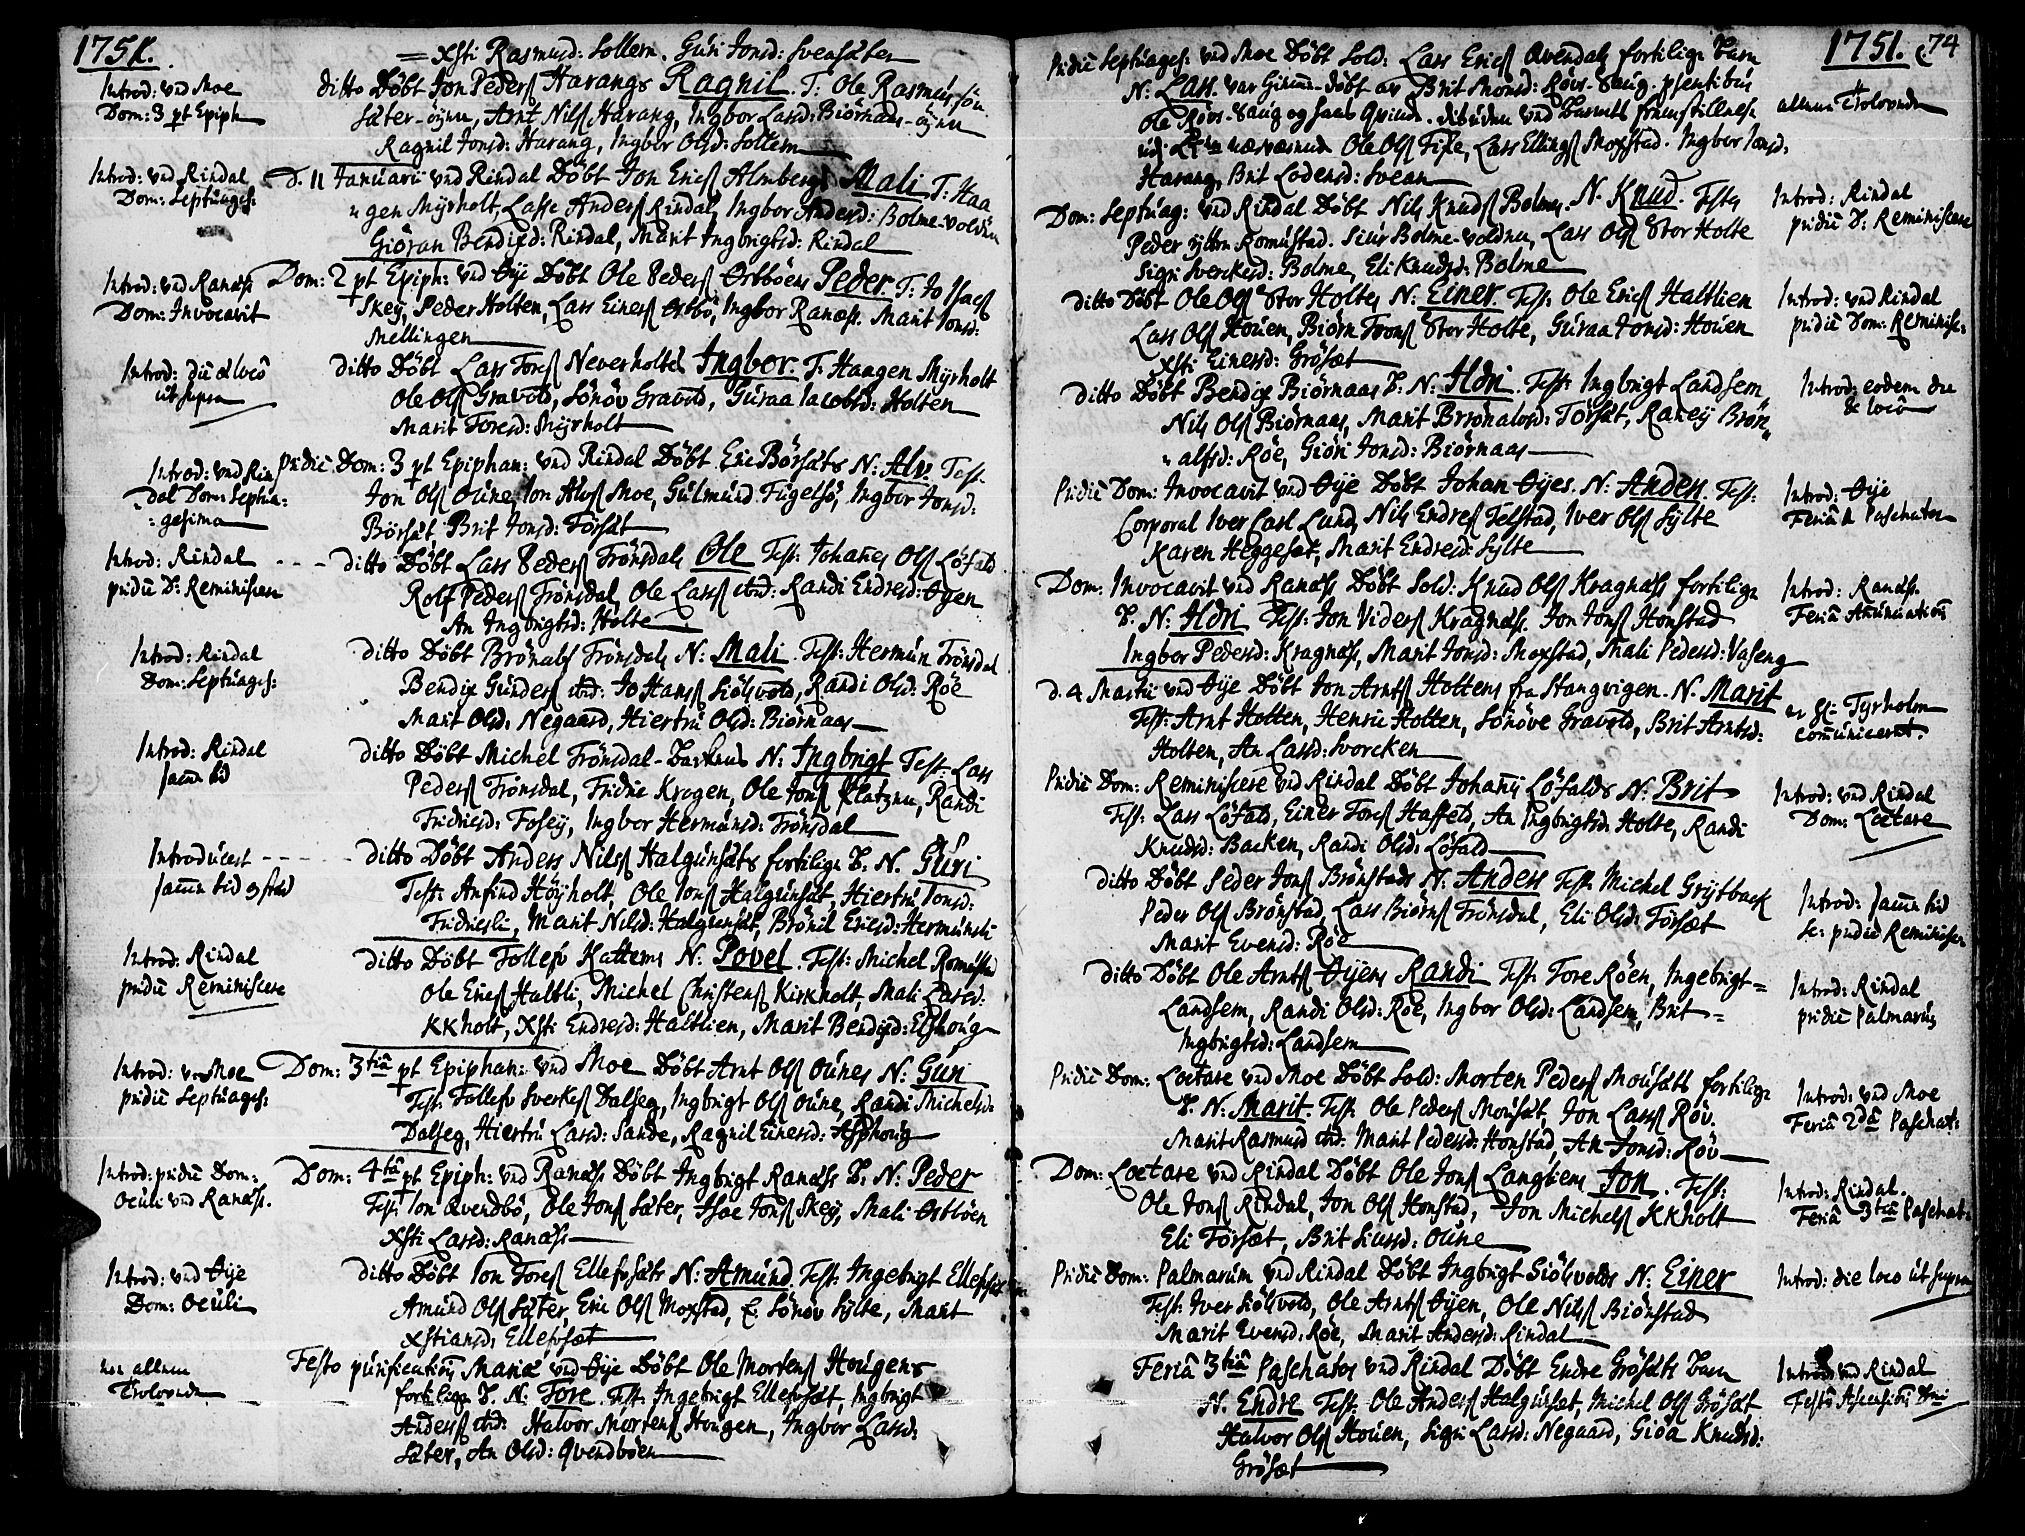 1751.
= Xsti Rasmusd: Sollem. Guri Jonsd: Svensæter
Introd: ved Moe
Dom: 3 pt Epiph
ditto Döbt Jon Peders Harangs Ragnil. T: Ole Rasmussön
Sæter-öÿen, Arnt Nils Harang, Ingbor Larsd: Biörnaas-öÿen
Ragnil Jonsd: Harang, Ingbor Olsd: Sollem
Introd: ved Rindal
Dom: Septuages:
D. 11 Januarii ved Rindal Döbt Jon Erics Almbergs Mali T: Haa
gen Myrholt, Lasse Anders Rindal, Ingbor Andersd: Bolme-volden
Giöran Bendixd: Rindal, Marit Ingbrigtsd: Rindal
Introd: ved Ranæss
Dom: Invocavit
Dom: 2 pt Epiph: ved Øÿe Döbt Ole Peders Ørtböens Peder T: Jo Isacs
Skeÿ, Peder Holten, Lars Einers Ørtbö, Ingbor Ranæss. Marit Jonsd:
Mellingen
Introd: die & loco
ut supra
ditto Döbt Lars Tores Neverholtes Ingbor. T: Haagen Myrholt
Ole Ols Gravold, Sönöv Gravold, Guraa Jacobsd: Holten
Marit Toresd: Myrholt
Introd: ved Rin
dal Dom: Septua:
gesima
Pridie Dom: 3 pt Epiphan: ved Rindal Döbt Eric Börsæts N: Alv. Test.
Jon Ols Oune, Jon Alvs Moe, Gulmund Fugelsö, Ingbor Jonsd:
Börsæt, Brit Jonsd: Försæt
Introd: Rindal
pridie D: Reminiscere
ditto Döbt Lars Peders Trönsdals Ole Test: Johanes Ols Löfald
Rolf Peders Trönsdal, Ole Lars ibid: Randi Endresd: Øÿen
An Ingbrigtsd: Holte
Introd: Rindal
Dom: Septuages:
ditto Döbt Brönals Trönsdals N: Mali. Test: Hermun Trönsdal
Bendix Gunders ibid: Jo Hans Siölsvold, Randi Olsd: Röe
Marit Olsd: Negaard, Hiertru Olsd: Biörnaas
Introd: Rindal
samme tid
ditto Döbt Michel Trönsdal-Backens N: Ingbrigt Test: Lars
Peders Trönsdal, Fridrie Krogen, Ole Jons Platzen, Randi
Fridriesd: Foseÿ, Ingbor Hermunsd: Trönsdal
Introducert
samme tid og sted
ditto Döbt Anders Nils Halgunsæts fortilige B. N. Guri
Test: Anfind Höÿholt, Ole Jons Halgunsæt, Hiertru Jonsd:
Fridriesli, Marit Nilsd: Halgunsæt, Brönil Ericsd: Hermunsli
Introd: Rindal
pridie Reminiscere
ditto Döbt Tollefv Kattems N: Povel. Test: Michel Romustad
Ole Erics Haltli, Michel Christens Kirkholt, Mali Larsd:
KKholt, Xsti Endresd: Haltlien, Marit Bendixd: Elshoug
Introd: v. Moe
pridie Septuages:
Dom: 3tiâ pt Epiphan: ved Moe Döbt Arnt Ols Ounes N: Guri
Test: Tollefv Sverkes Dalseg, Ingbrigt Ols Oune, Randi Michelsd:
Dalseg, Hiertru Larsd: Sande, Ragnil Einersd: Asphoug
Introd: pridie Dom:
Oculi ved Ranæss.
Dom: 4tâ pt Epiph: ved Ranæss Döbt Ingbrigt Ranæss B. N: Peder
Test: Jon Qvendbö, Ole Jons Sæter, Isac Jons Skeÿ, Mali Ørtböen
Xsti Larsd: Ranæss
Introd: ved Øÿe
Dom: Oculi
ditto Döbt Jon Tores Ellefvsæts N: Amund. Test: Ingebrigt Ellefvsæt
Amund Ols Sæter, Eric Ols Moxstad, Sönöv Sylte, Marit
Xstiansd: Ellefvsæt
allene
Trolovede
Festo purificationis Mariæ ved Øÿe Döbt Ole Mortens Hougens
fortilige B. N: Tore. Test: Ingebrigt Ellefvsæt, Ingbrigt
Anders ibid: Halvor Mortens Hougen, Ingbor Larsd:
Sæter, An Olsd: Qvendböen
1751. 74
Pridie Septuages: ved Moe Döbt Sold: Lars Erics Qvendals fortilige Barn
N: Lars. var hiemme-döbt av Brit Monsd: Rövs-Haug. psentibus
Ole Rövs-Haug og hans Qvinde. ved Barnets fremstillelse
Ole Ols Fixe, Lars Ellings Moxstad. Ingbor Jonsd:
Harang, Brit Lodensd: Svean
allene Trolovede
Dom: Septuag: ved Rindal Döbt Nils Knuds Bolmes N. Knud. Testes
Peder Romustad. Siur Bolme-voldnen, Lars Ols Stor Holte
Sigri Sverckesd: Bolme, Eli Knudsd: Bolme
Introd: Rindal
pridie D: Reminiscere
ditto Döbt Ole Ols Stor Holtes N: Einer. Test: Ole Erics Haltlien
Lars Ols Houen, Biörn Trons Stor Holte, Guraa Jonsd: Houen
Xsti Einersd: Grösæt
Introd: ved Rindal
pridie Dom: Reminisc:
ditto Döbt Bendix Biörnaas B. N: Adri. Test: Ingbrigt Landsem
Nils Ols Biörnaas, Marit Brönalvsd: Törsæt, Raneÿ Brön
alfsd: Röe, Giöri Jonsd: Biörnaas
Introd: eodem die
& loco
Pridie Dom: Invocavit ved Øÿe Döbt Johan Øÿes. N: Anders. Test:
Corporal Iver Carl Lund, Nils Endres Telstad, Iver Ols Sylte
Karen Heggeset, Marit Endresd: Sylte
Introd: Øÿe
Feriâ Paschatos
Dom: Invocavit ved Ranæss Döbt Sold: Knud Ols Kragnæss fortilige
B. N: Adri Test: Jon Viders Kragnæss. Jon Jons Honstad
Ingbor Pedersd: Kragnæss, Marit Jonsd: Moxstad, Mali Pedersd: Vaseng
Introd: Ranæss.
Feria Anunciationis
d. 4 Martii ved Øÿe Döbt Jon Arnts Holtens fra Stangvigen. N. Marit
Test: Arnt Holten, Henric Holten, Sönöve Gravold, Brit Arntsd:
Holten, An Larsd: Svorcken
Tyrholm
communicerit.
Pridie Dom: Reminiscere ved Rindal Döbt Johanes Löfalds N: Brit
Test: Lars Löfald, Einer Tores Haffeld, An Ingbrigtsd: Holte, Randi
Knudsd: Backen, Randi Olsd: Löfald
Introd: ved Rindal
Dom: Lætare
ditto Döbt Peder Jons Brönstads N: Anders Test: Michel Grÿtback
Peder Ols Brönstad, Lars Biörns Trönsdal, Eli Olsd: Försæt
Marit Evensd: Röe
Introd: samme tid
sc: pridie Reminiscere
ditto Döbt Ole Arnts Øÿens Randi Test: Tore Röen, Ingebrigt=
Landsem, Randi Olsd: Röe, Ingbor Olsd: Landsem, Brit=
Ingbrigtsd: Landsem
Introd: Rindal
pridie Palmarum
Pridie Dom: Lætare ved Moe Döbt Sold: Morten Peders Mousæts fortilige
B. N: Marit. Test: Ole Peders Mousæt, Jon Lars Röv.
Marit Rasmusd ibid: Marit Pedersd: Honstad, An Jonsd: Röv
Introd: ved Moe
Feriâ 2dâ Paschat:
Dom: Lætare ved Rindal Döbt Ole Jons Langliens Jon. Test:
Ole Jons Rindal, Jon Ols Honstad, Jon Michels KKholt
Eli Försæt, Brit Siursd: Oune
Introd: Rindal.
Feriâ 3tiâ Paschat:
Pridie Dom: Palmarum ved Rindal Döbt Ingbrigt Siölsvolds N: Einer
Test: Iver Siölsvold, Ole Arnts Øÿen, Ole Nils Biörnstad
Marit Evensd: Röe, Marit Andersd: Rindal
Introd: die loco ut supra
Feriâ 3tiâ Paschatos ved Rindal Döbt Endre Grösæts Barn
N. Endre Test: Ole Anders Halgunsæt, Michel Ols Grösæt
Halvor Ols Houen, Sigri Larsd: Negaard, Giöa Knudsd:
Grösæt
Introd: ved Rindal
Festo Ascensionis Dni